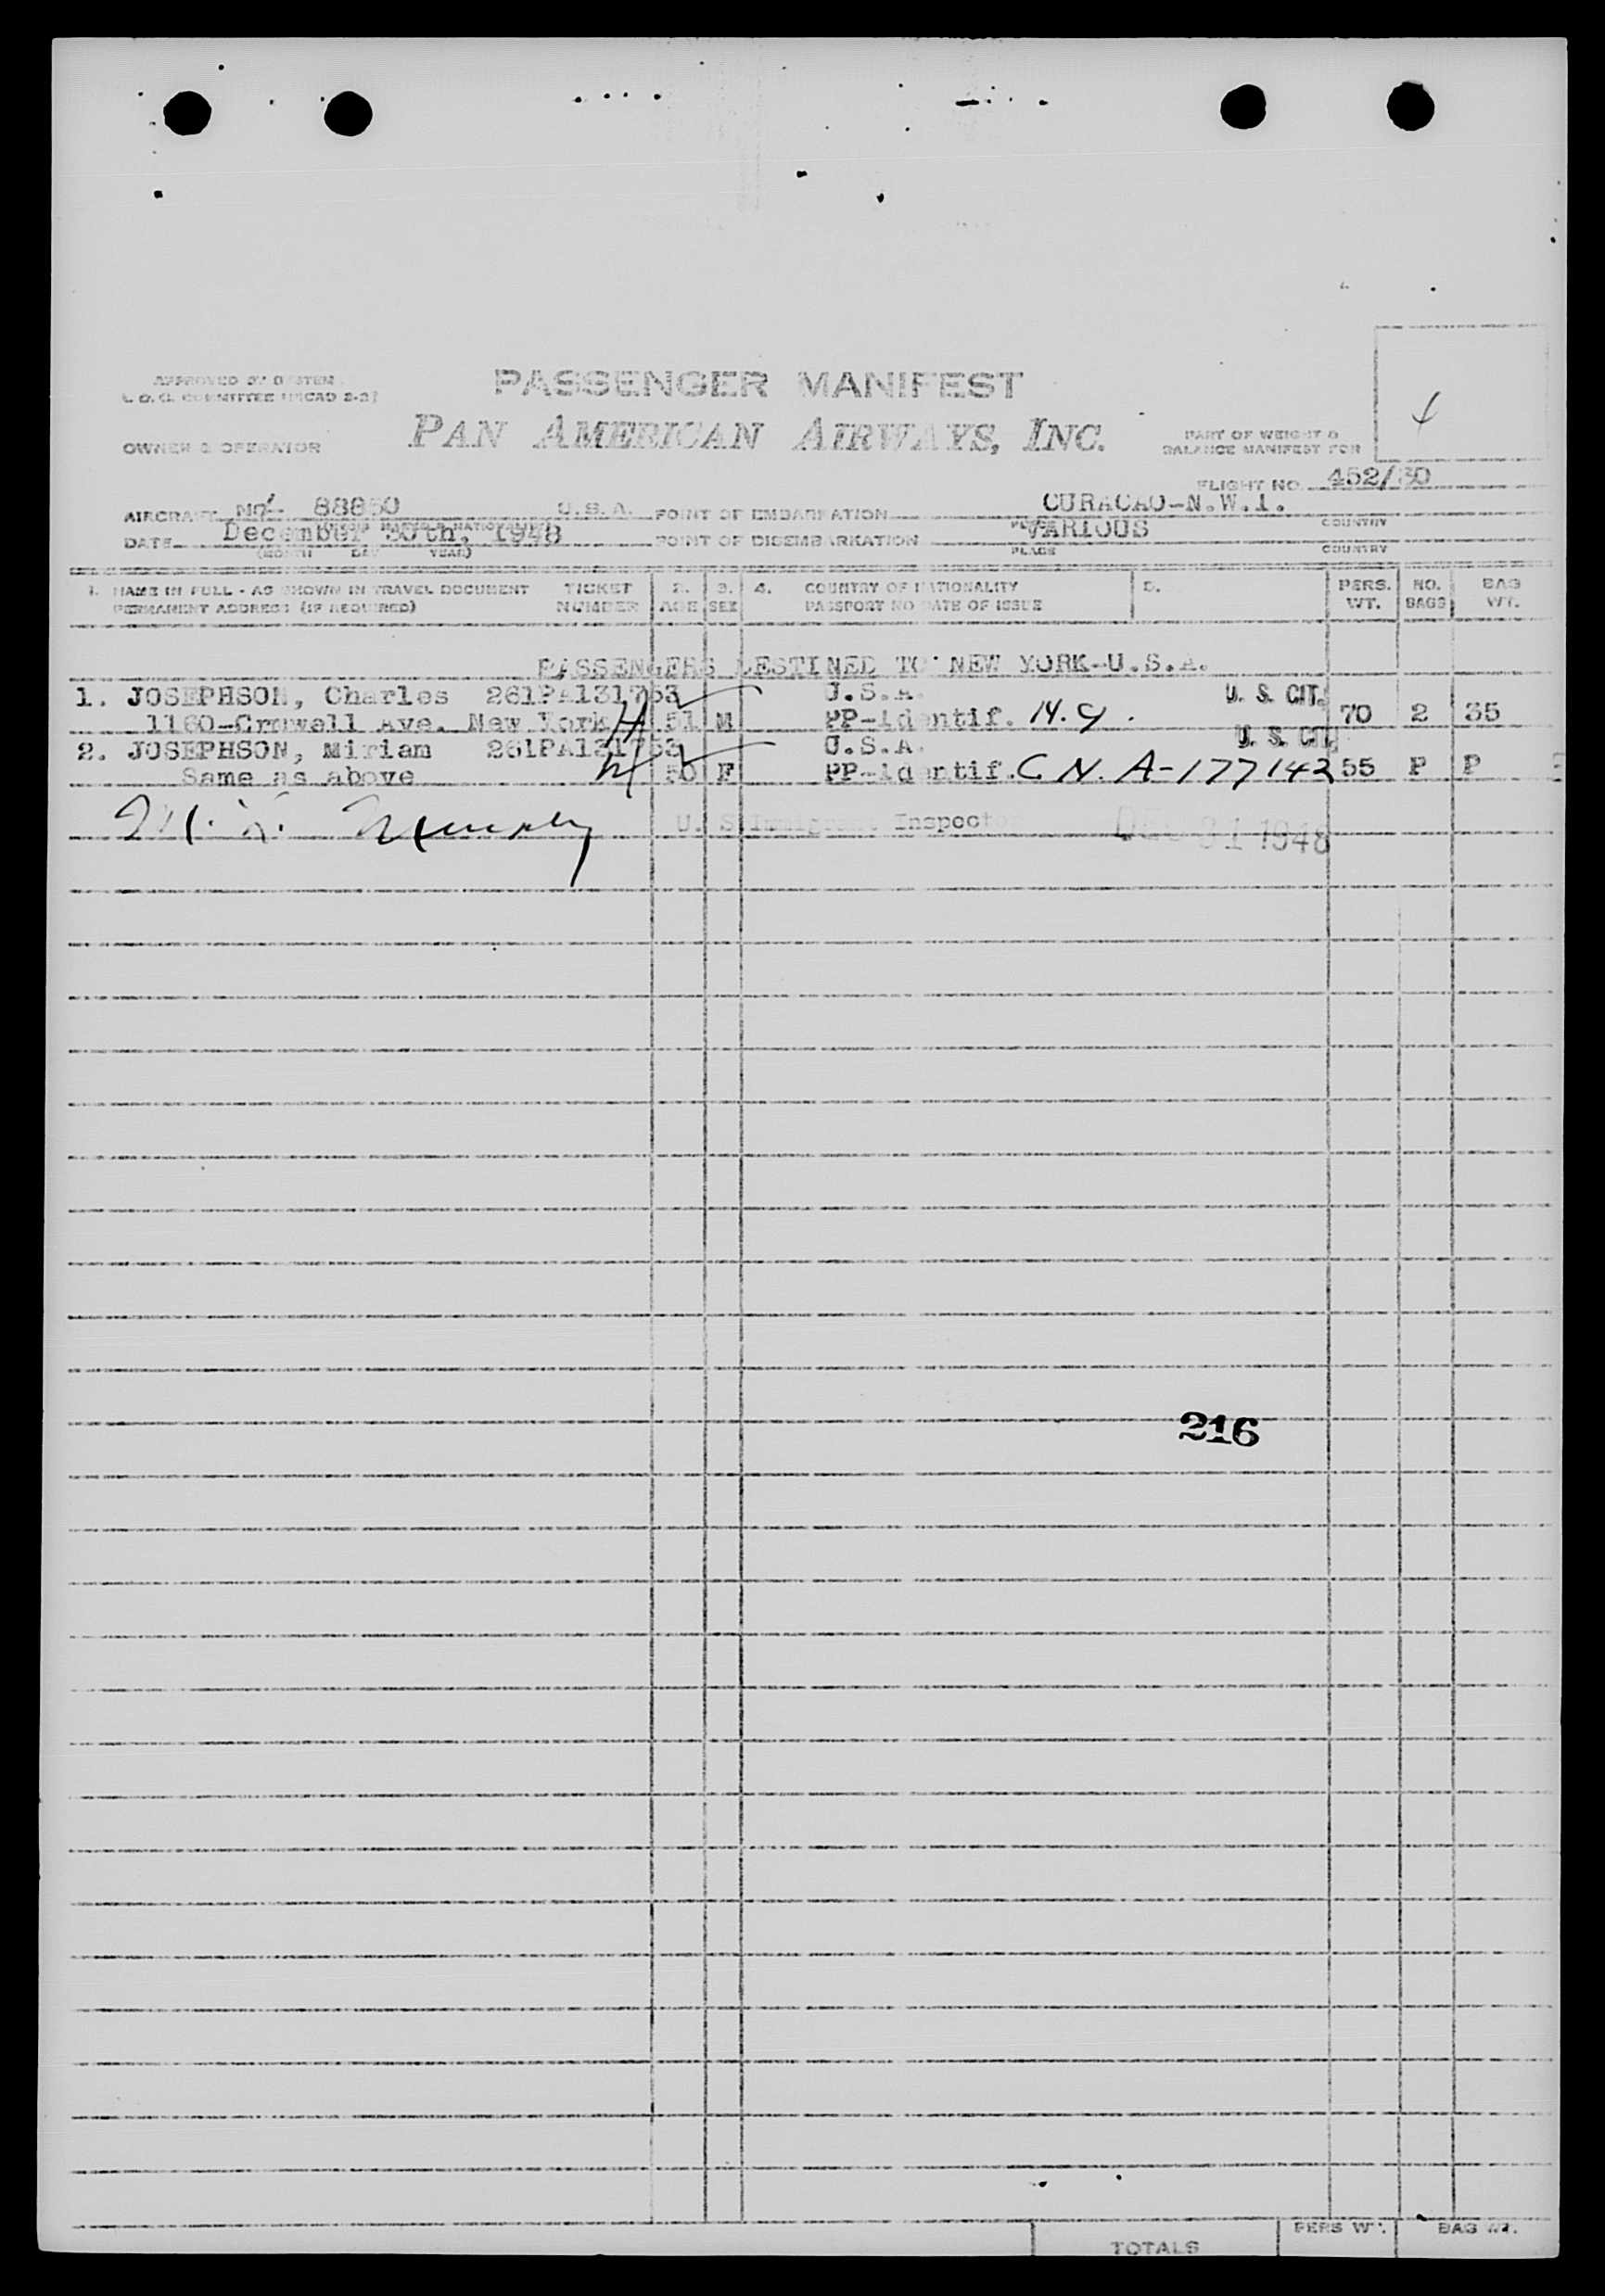 PASSENGER MANIFEST
PAN AMERICAN AIRWAYS, INC.
OWNER & OPERATOR
PART OF WEIGHT &
BALANCE MANIFEST FOR
FLIGHT NO. 452/30
AIRCRAFT 88850 U.S.A. POINT OF EMBARKATION CURACAO-N.W.I.
PLACE COUNTRY
DATE December 30th, 1948 POINT OF DISEMBARKATION VARIOUS
(MONTH DAY YEAR) PLACE COUNTRY
1. NAME IN FULL - AS SHOWN IN TRAVEL DOCUMENT TICKET 2. 3. 4. COUNTRY OF NATIONALITY 5. PERS. NO. BAG
PERMANENT ADDRESS (IF REQUIRED) NUMBER AGE SEX PASSPORT NO DATE OF ISSUE WT. BAGS WT.
PASSENGERS DESTINED TO NEW YORK-U.S.A.
1. JOSEPHSON, Charles 261PA131753 U.S.A. U. S. CIT.
1160-Cromwell Ave. New York 51 M PP-identif. 70 2 35
2. JOSEPHSON, Miriam 261PA131753 U.S.A. U. S. CIT.
Same as above 50 F PP-identif. C N. A-177142 55 P P
U. S. Immigrant Inspector DEC 31 1948
216
PERS WT. BAG WT.
TOTALS